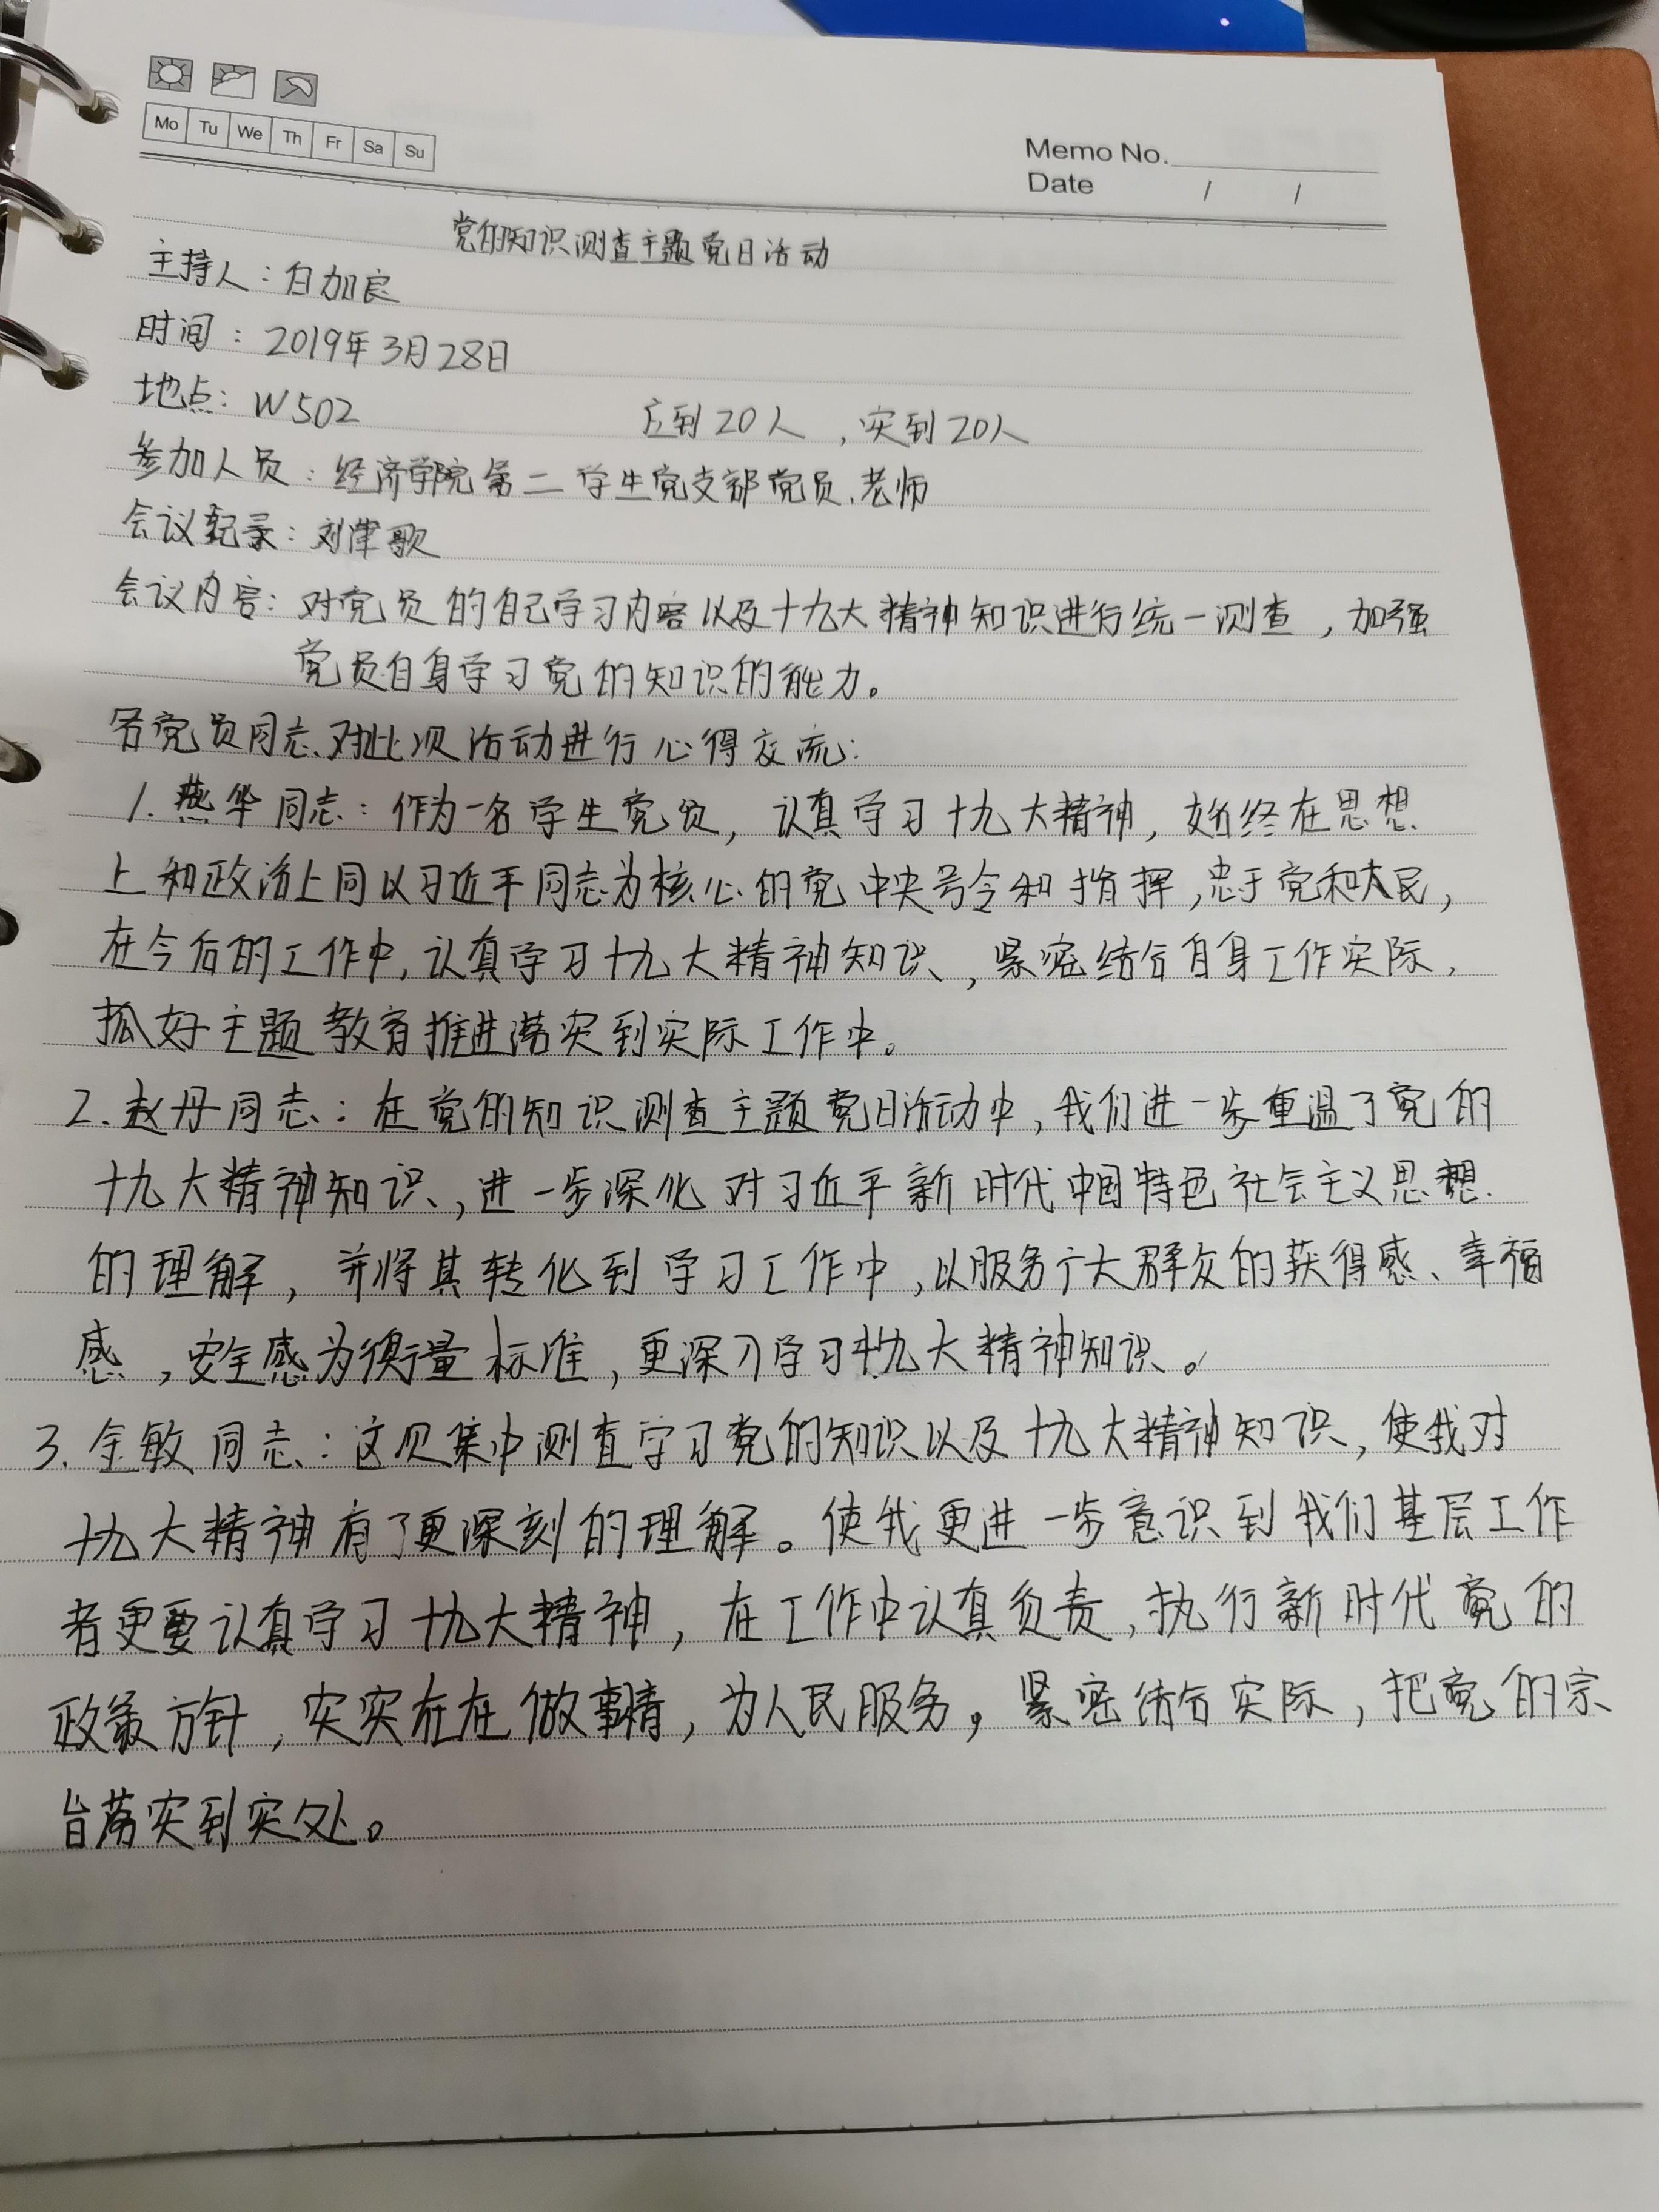 Mo Tu We Th Fr Sa Su
Memo No.
Date / /
党的知识测查主题党日活动
主持人：白加良
时间：2019年3月28日
地点：W502 应到20人，实到20人
参加人员：经济学院第二学生党支部党员、老师
会议纪录：刘津歌
会议内容：对党员的自己学习内容以及十九大精神知识进行统一测查，加强
党员自身学习党的知识的能力。
各党员同志对此次活动进行心得交流：
1.燕华同志：作为一名学生党员，认真学习十九大精神，始终在思想
上和政治上同以习近平同志为核心的党中央号令和指挥，忠于党和人民，
在今后的工作中，认真学习十九大精神知识，紧密结合自身工作实际，
抓好主题教育推进落实到实际工作中。
2.赵丹同志：在党的知识测查主题党日活动中，我们进一步重温了党的
十九大精神知识，进一步深化对习近平新时代中国特色社会主义思想
的理解，并将其转化到学习工作中，以服务广大群众的获得感、幸福
感，安全感为衡量标准，更深刀学习十九大精神知识。
3.金敏同志：这次集中测查学习党的知识以及十九大精神知识，使我对
十九大精神有了更深刻的理解。使我更进一步意识到我们基层工作
者更要认真学习十九大精神，在工作中认真负责，执行新时代党的
政策方针，实实在在做事情，为人民服务，紧密结合实际，把党的宗
旨落实到实处。